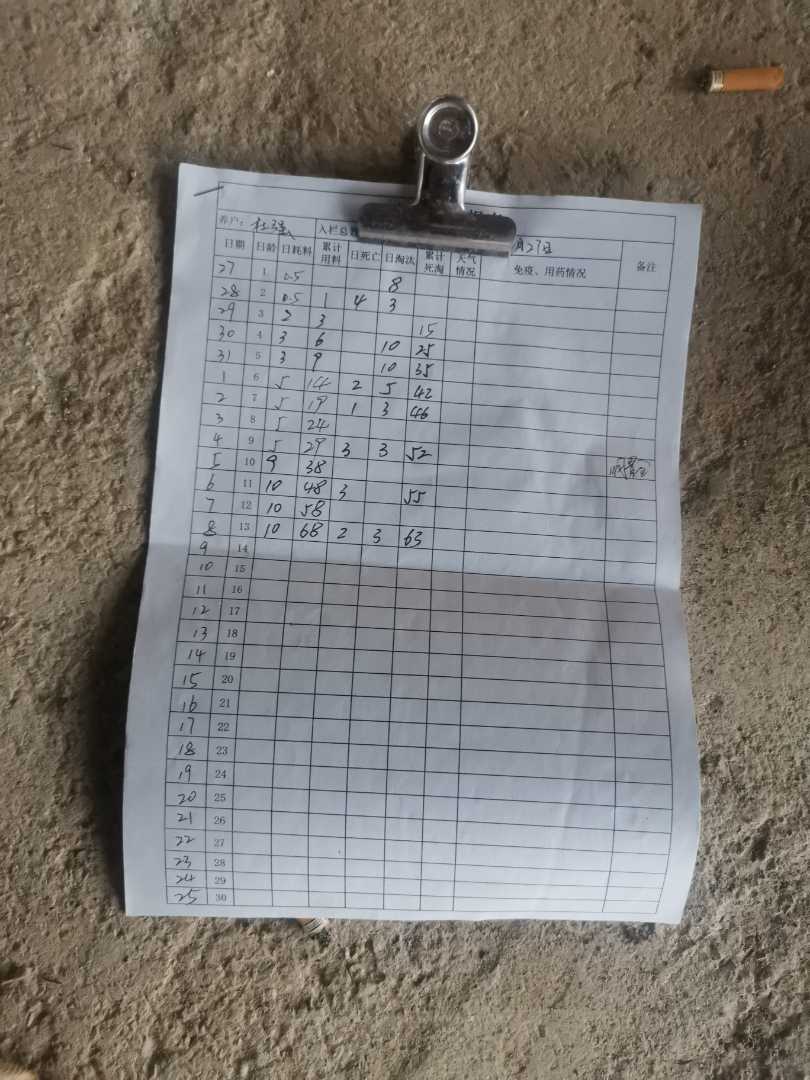 养户： 杜强 入栏总 月27日
日期 日龄 日耗料 累计用料 日死亡 日淘汰 累计死淘 天气情况 免疫、用药情况 备注
27 1 0.5 8
28 2 0.5 1 4 3
29 3 2 3 15
30 4 3 6 10 25
31 5 3 9 10 35
1 6 5 14 2 5 42
2 7 5 19 1 3 46
3 8 5 24
4 9 5 29 3 3 52
5 10 9 38
6 11 10 48 3 55
7 12 10 58
8 13 10 68 2 3 63
9 14
10 15
11 16
12 17
13 18
14 19
15 20
16 21
17 22
18 23
19 24
20 25
21 26
22 27
23 28
24 29
25 30